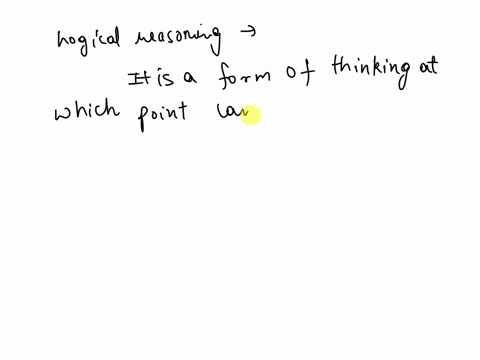 Logical reasoning →
It is a form of thinking at
which point